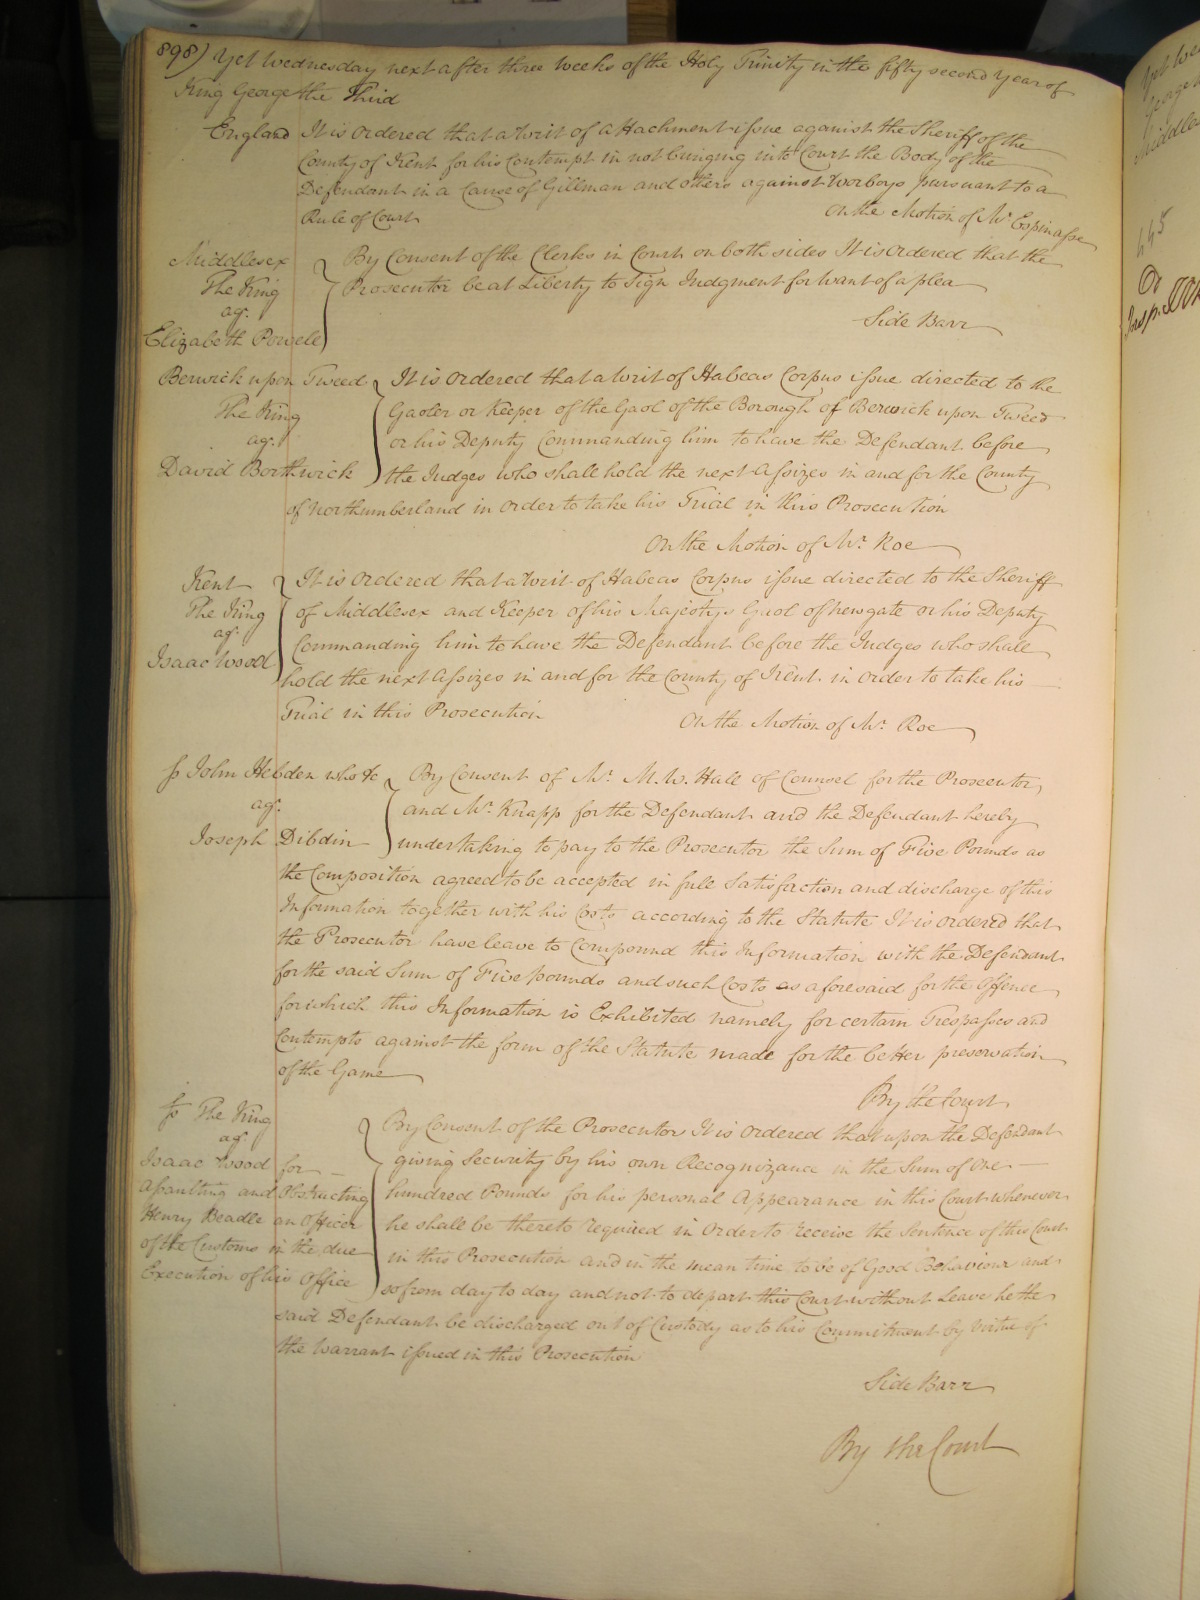 898) Yet Wednesday next after three Weeks of the Holy Trinity in the fifty second Year of
King George the Third
England It is Ordered that a Writ of Attachment issue against the Sheriff of the
County of Kent for his Contempt in not bringing into Court the Body of the
Defendant in a Cause of Gillman and others against Worboys pursuant to a
Rule of Court
On the Motion of Mr. Espinasse
Middlesex
The King
agt.
Elizabeth Powell
By Consent of the Clerks in Court on both sides It is Ordered that the
Prosecutor be at Liberty to Sign Judgment for Want of a plea
Side Barr
Berwick upon Tweed
The King
agt.
David Borthwick
It is Ordered that a Writ of Habeas Corpus issue directed to the
Gaoler or Keeper of the Gaol of the Borough of Berwick upon Tweed
or his Deputy Commanding him to have the Defendant before
the Judges who shall hold the next Assizes in and for the County
of Northumberland in Order to take his Trial in this Prosecution
On the Motion of Mr. Roe
Kent
The King
agt.
Isaac Wood
It is Ordered that a Writ of Habeas Corpus issue directed to the Sheriff
of Middlesex and Keeper of his Majestys Gaol of Newgate or his Deputy
Commanding him to have the Defendant before the Judges who shall
hold the next Assizes in and for the County of Kent in Order to take his
Trial in this Prosecution
On the Motion of Mr. Roe
John Hebden who &c
agt.
Joseph Dibdin
By Consent of Mr. M. W. Hall of Counsel for the Prosecutor
and Mr. Knapp for the Defendant and the Defendant hereby
undertaking to pay to the Prosecutor the Sum of Five Pounds as
the Composition agreed to be accepted in full Satisfaction and discharge of this
Information together with his Costs according to the Statute It is ordered that
the Prosecutor have leave to Compound this Information with the Defendant
for the said Sum of Five pounds and such Costs as aforesaid for the Offence
for which this Information is Exhibited namely for certain Trespasses and
Contempts against the form of the Statute made for the better preservation
of the Game
By the Court
The King
agt.
Isaac Wood for
Assaulting and Obstructing
Henry Beadle an Officer
of the Customs in the due
Execution of his Office
By Consent of the Prosecutor It is Ordered that upon the Defendant
giving Security by his own Recognizance in the Sum of One
hundred Pounds for his personal Appearance in this Court whenever
he shall be thereto required in Order to receive the Sentence of this Court
in this Prosecution and in the mean time to be of Good Behaviour and
so from day to day and not to depart this Court without Leave he the
said Defendant be discharged out of Custody as to his Commitment by Virtue of
the Warrant issued in this Prosecution
Side Barr
By the Court
445